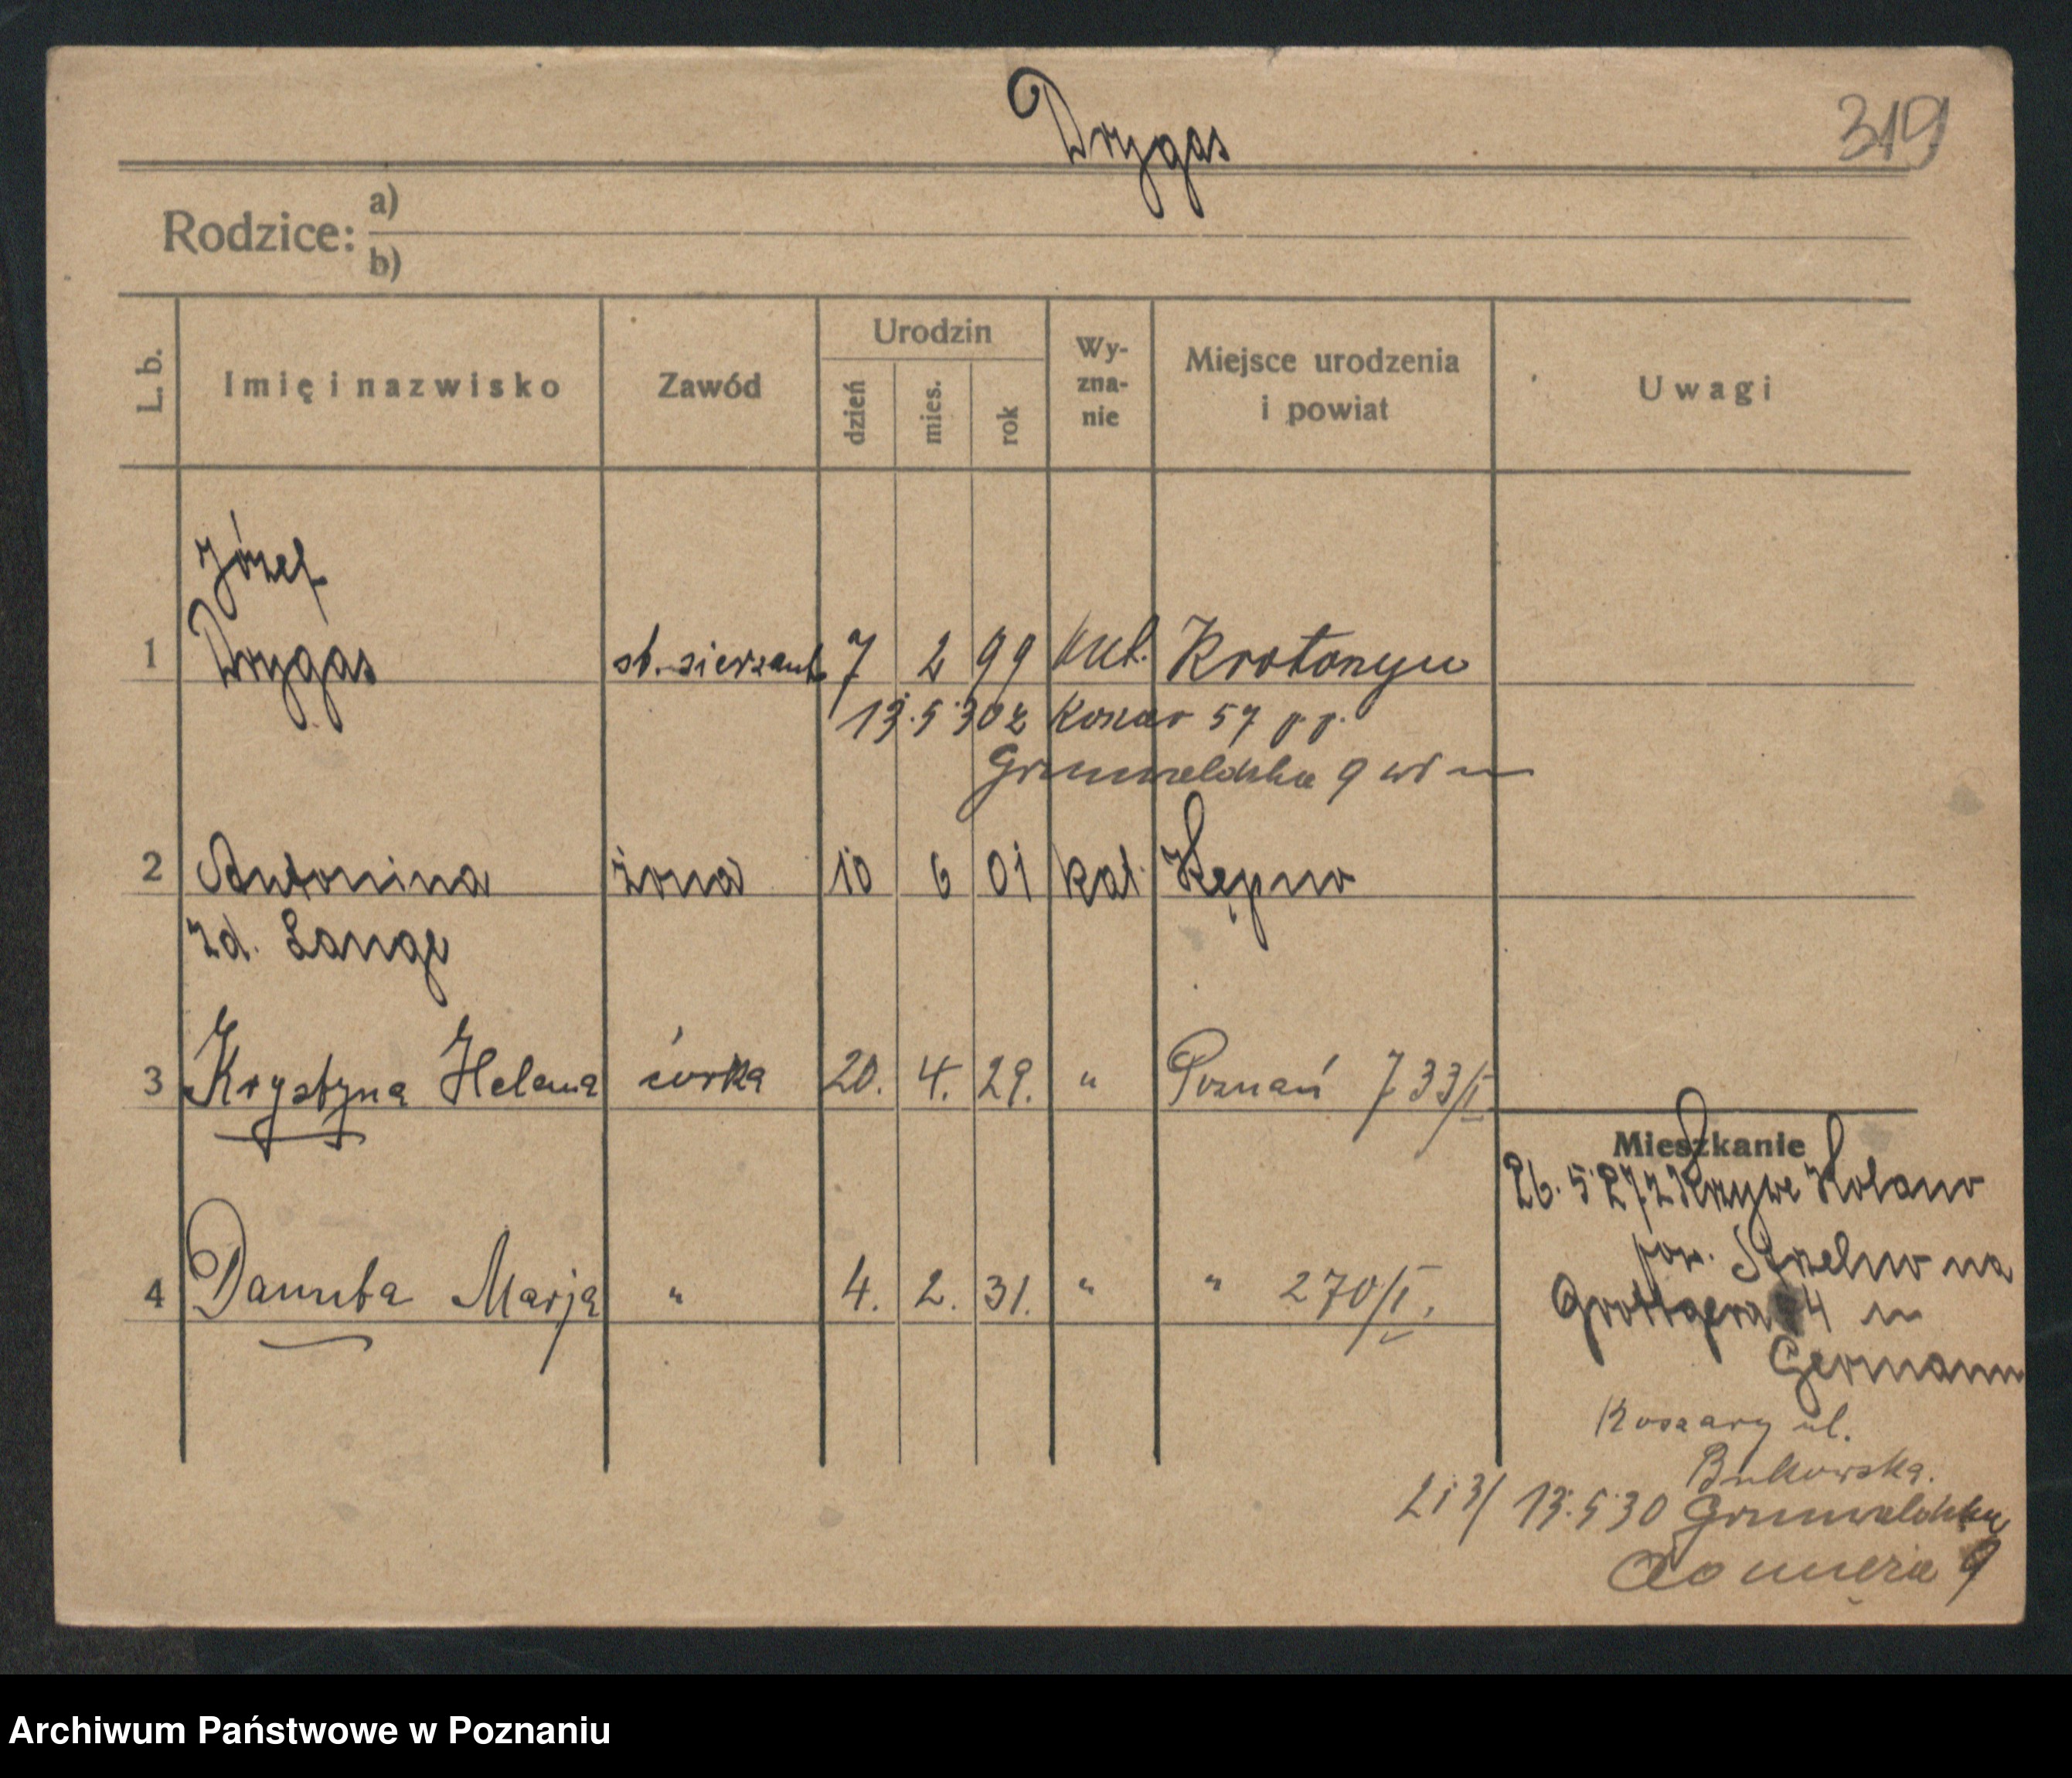 Drygas
319
Rodzice:
a)
b)
L. b.
Imię i nazwisko
Zawód
Urodzin
dzień
mies.
rok
Wy-
zna-
nie
Miejsce urodzenia
i powiat
Uwagi
Józef
1 Drygas st. sierżant 7 2 99 kat. Krotoszyn
13.5 30 z Koszar 57 p. p.
Grunwaldzka 9
2 Antonina żona 10 6 01 kat. Kępno
zd. Lange
3 Krystyna Helena córka 20. 4. 29. " Poznań 733/I
4 Danuta Marja " 4. 2. 31. " " 270/I.
Mieszkanie
26. 5 27 z Krzywe Kolano
pow. Strzelno na
Grottgera 4 u
Germann
Koszary ul.
Bukowska.
2 i 3/ 13.5 30 Grunwaldzka
do męża 9
Archiwum Państwowe w Poznaniu